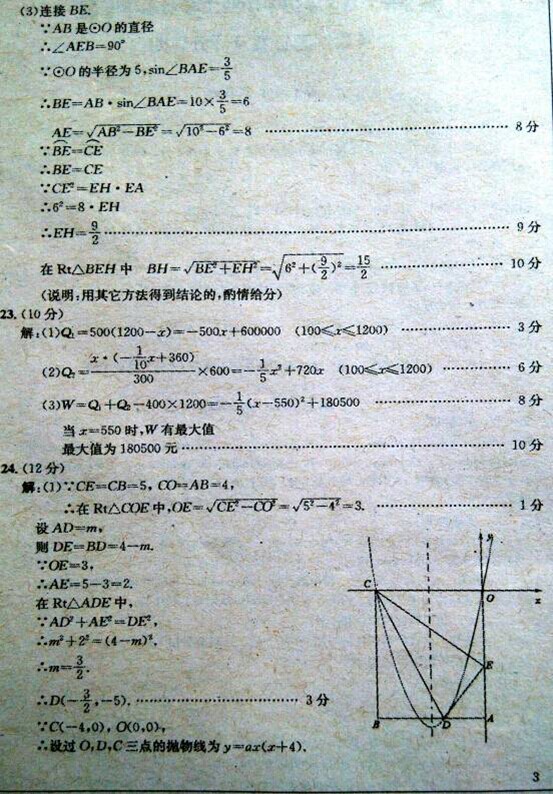 (3)连接 BE.
∵AB 是⊙O 的直径
∴∠AEB=90°
∵⊙O 的半径为 5,sin∠BAE=3/5
∴BE=AB·sin∠BAE=10×3/5=6
AE=√(AB²-BE²)=√(10²-6²)=8 ………… 8 分
∵⌒BE=⌒CE
∴BE=CE
∵CE²=EH·EA
∴6²=8·EH
∴EH=9/2 ………… 9 分
在 Rt△BEH 中 BH=√(BE²+EH²)=√(6²+(9/2)²)=15/2 ………… 10 分
(说明:用其它方法得到结论的,酌情给分)
23.(10 分)
解:(1)Q₁=500(1200-x)=-500x+600000 (100≤x≤1200) ………… 3 分
(2)Q₂=x·(-1/10x+360)/300×600=-1/5x²+720x (100≤x≤1200) ………… 6 分
(3)W=Q₁+Q₂-400×1200=-1/5(x-550)²+180500 ………… 8 分
当 x=550 时,W 有最大值
最大值为 180500 元 ………… 10 分
24.(12 分)
解:(1)∵CE=CB=5, CO=AB=4,
∴在 Rt△COE 中,OE=√(CE²-CO²)=√(5²-4²)=3. ………… 1 分
设 AD=m,
则 DE=BD=4-m.
∵OE=3,
∴AE=5-3=2.
在 Rt△ADE 中,
∵AD²+AE²=DE²,
∴m²+2²=(4-m)².
∴m=3/2.
∴D(-3/2,-5). ………… 3 分
∵C(-4,0), O(0,0),
∴设过 O,D,C 三点的抛物线为 y=ax(x+4).
y
C
O
x
E
B
D
A
3